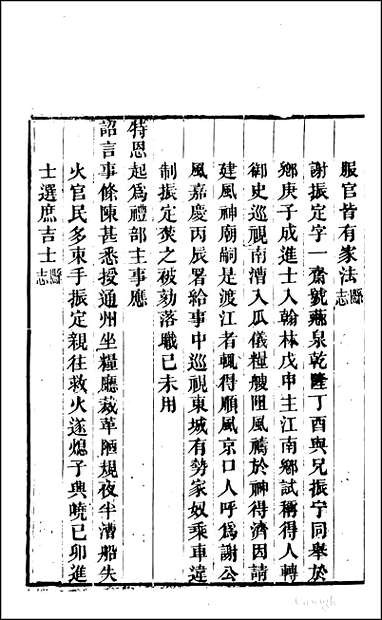 服官皆有家法縣志
謝振定字一齋號薌泉乾隆丁酉與兄振宁同舉於
鄉庚子成進士入翰林戊申主江南鄉試稱得人轉
御史巡視南漕入瓜儀糧艘阻風禱於神得濟因請
建風神廟嗣是渡江者輒得順風京口人呼爲謝公
風嘉慶丙辰署給事中巡視東城有勢家奴乘車違
制振定笞之被劾落職已未用
特恩起爲禮部主事應
詔言事條陳甚悉授通州坐糧廳裁革陋規夜半漕船失
火官民多束手振定親往救火遂熄子興嶢己卯進
士選庶吉士縣志